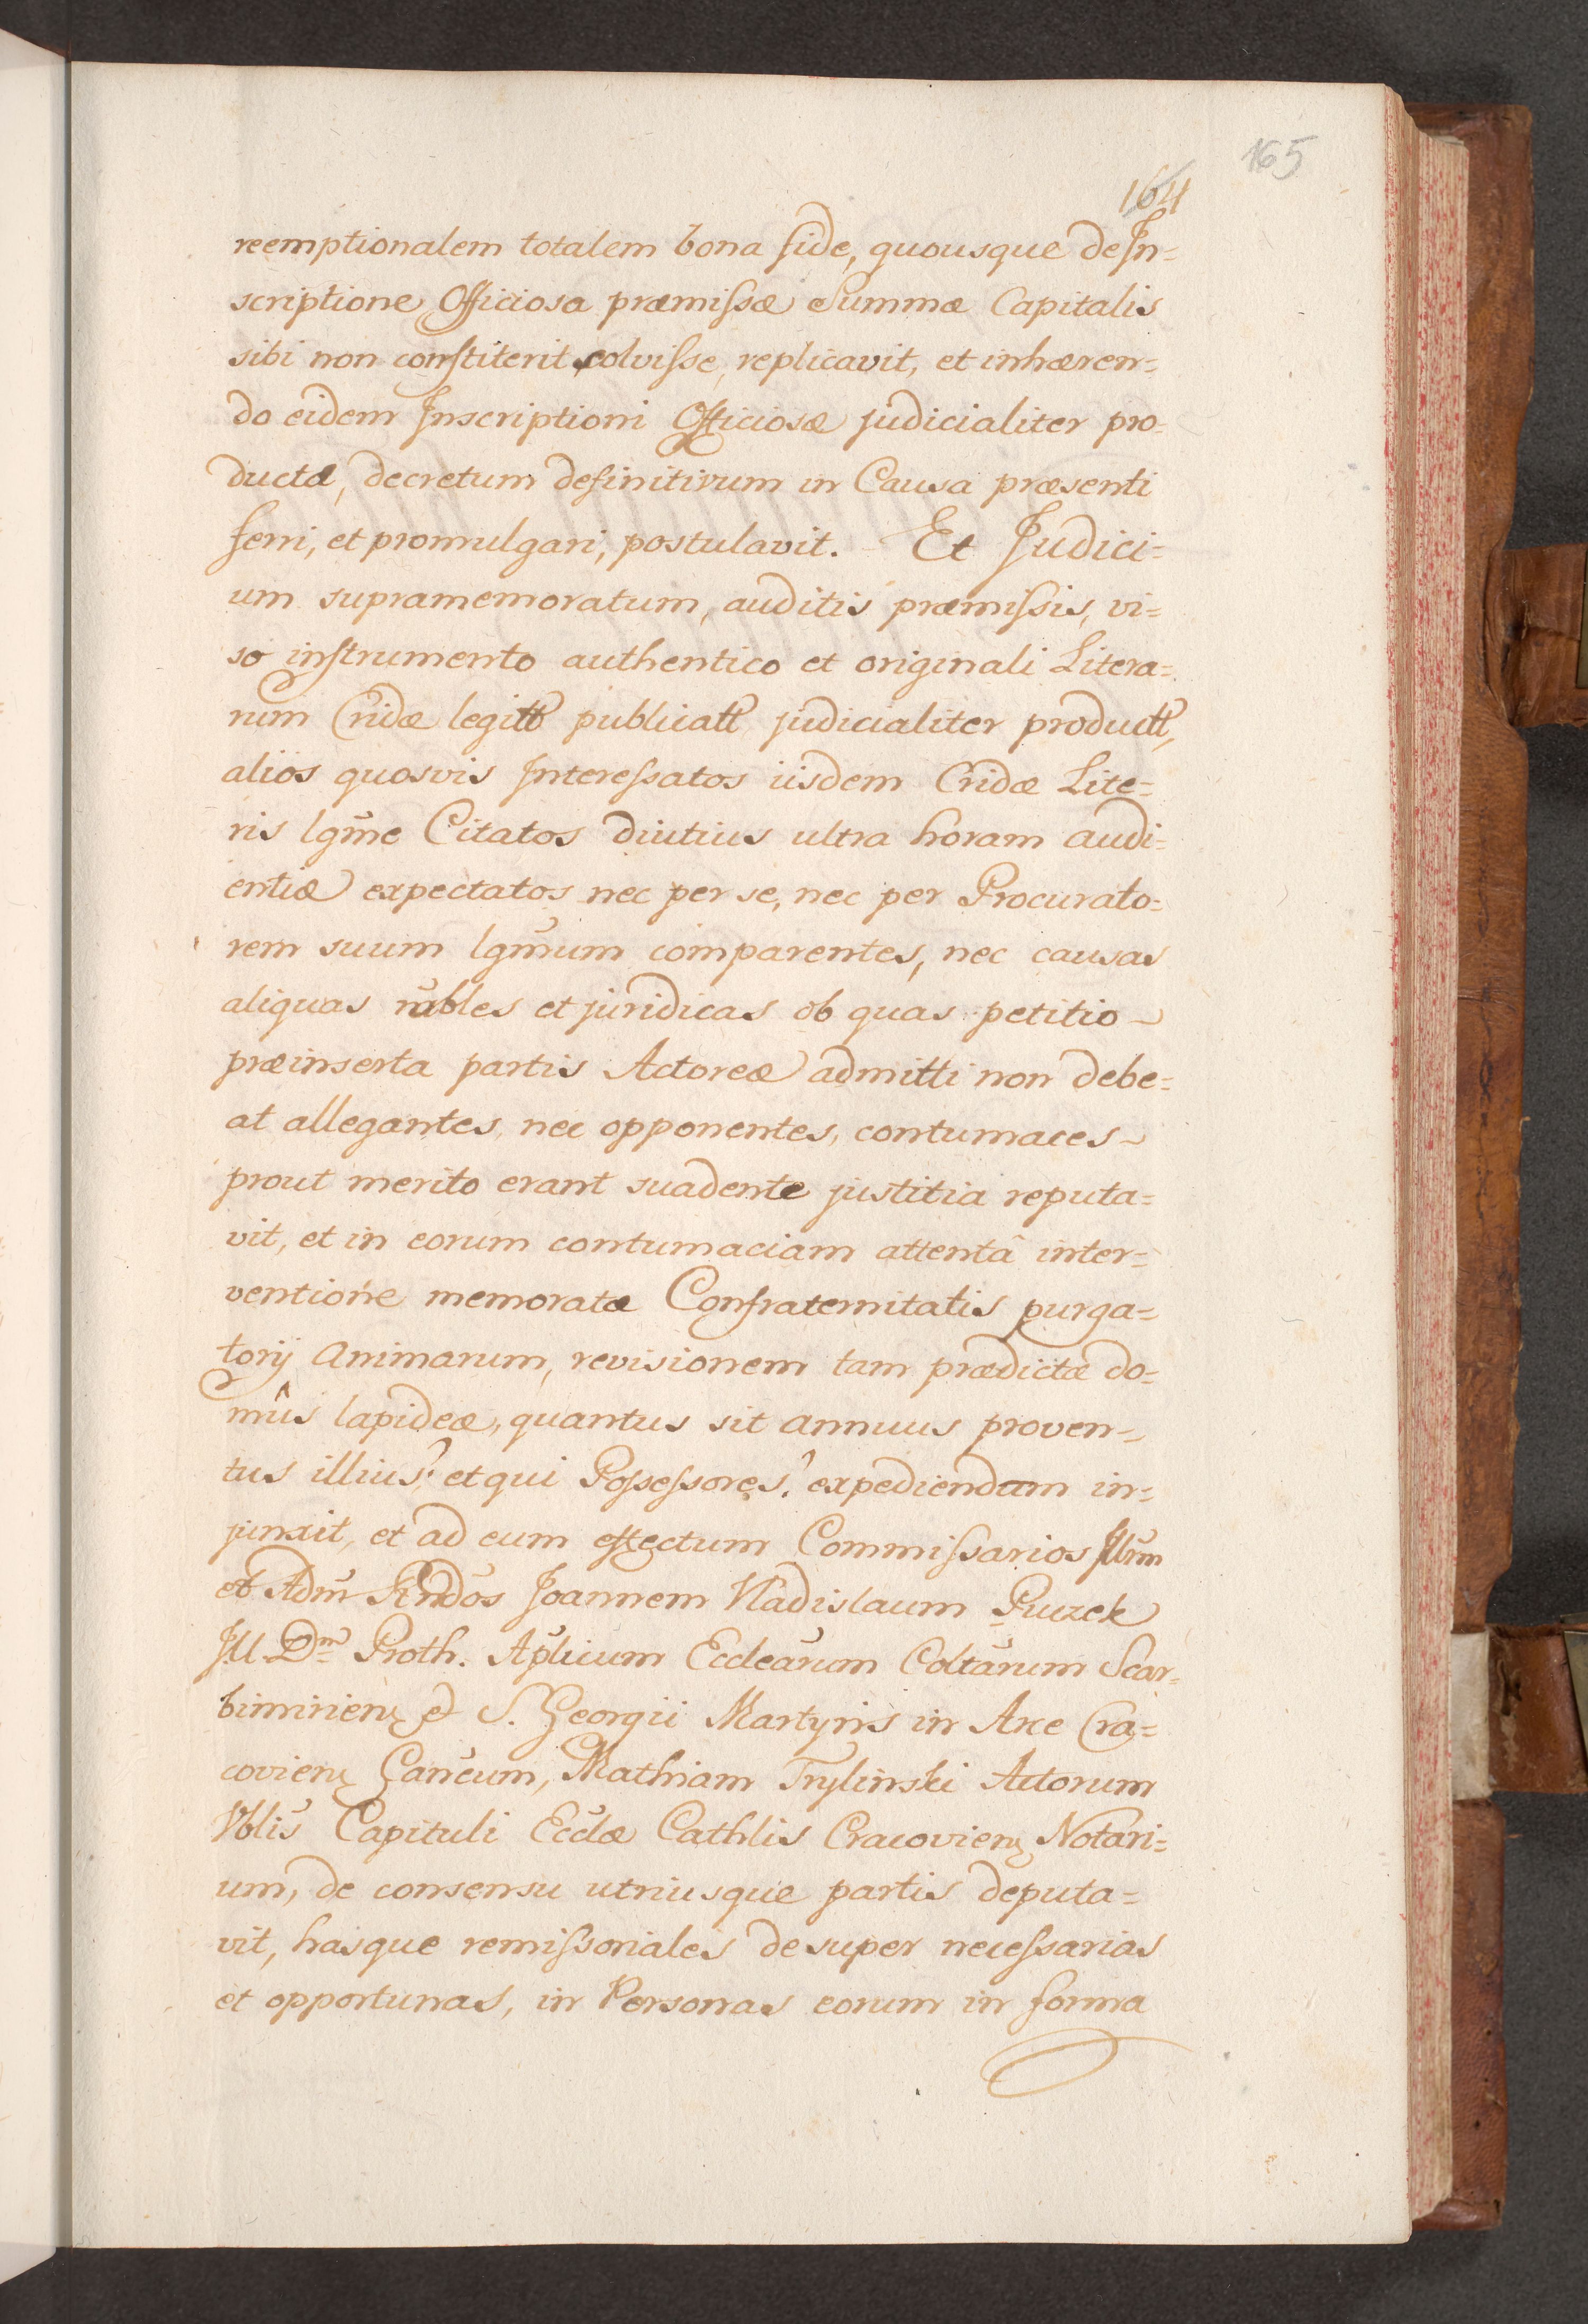 165
164
reemptionalem totalem bona fide, quousque de In=
scriptione Officiosa præmissæ Summæ Capitalis
sibi non constiterit solvisse, replicavit, et inhæren=
do eidem Inscriptioni Officiosæ judicialiter pro=
ductæ, decretum definitivum in Causa præsenti
ferri, et promulgari, postulavit. Et Judici=
um supramemoratum, auditis præmissis, vi=
so instrumento authentico et originali Litera=
rum Cridæ legitt publicatt judicialiter productt,
alios quosvis Interessatos iisdem Cridæ Lite=
ris lgme Citatos diutius ultra horam audi=
entiæ expectatos nec per se, nec per Procurato=
rem suum lgmum comparentes, nec causas
aliquas rābles et juridicas ob quas petitio
præinserta partis Actoreæ admitti non debe=
at allegantes, nec opponentes, contumaces
prout merito erant suadente justitia reputa=
vit, et in eorum contumaciam attentâ inter=
ventione memoratæ Confraternitatis purga=
torij Animarum, revisionem tam prædictæ do=
mûs lapideæ, quantus sit annuus proven=
tus illius? et qui Possessores? expediendam in=
junxit, et ad eum effectum Commissarios Illrm
et Adm Rndos Joannem Vladislaum Ruzek
JU Drm Proth. Aplicum Ecclearum Coltarum Scar=
bimirien et S. Georgii Martyris in Arce Cra=
covien Cancum, Mathiam Trylinski Actorum
Vblis Capituli Ecclæ Cathlis Cracovien Notari=
um, de consensu utriusque partis deputa=
vit, hasque remissoriales desuper necessarias
et opportunas, in Personas eorum in forma